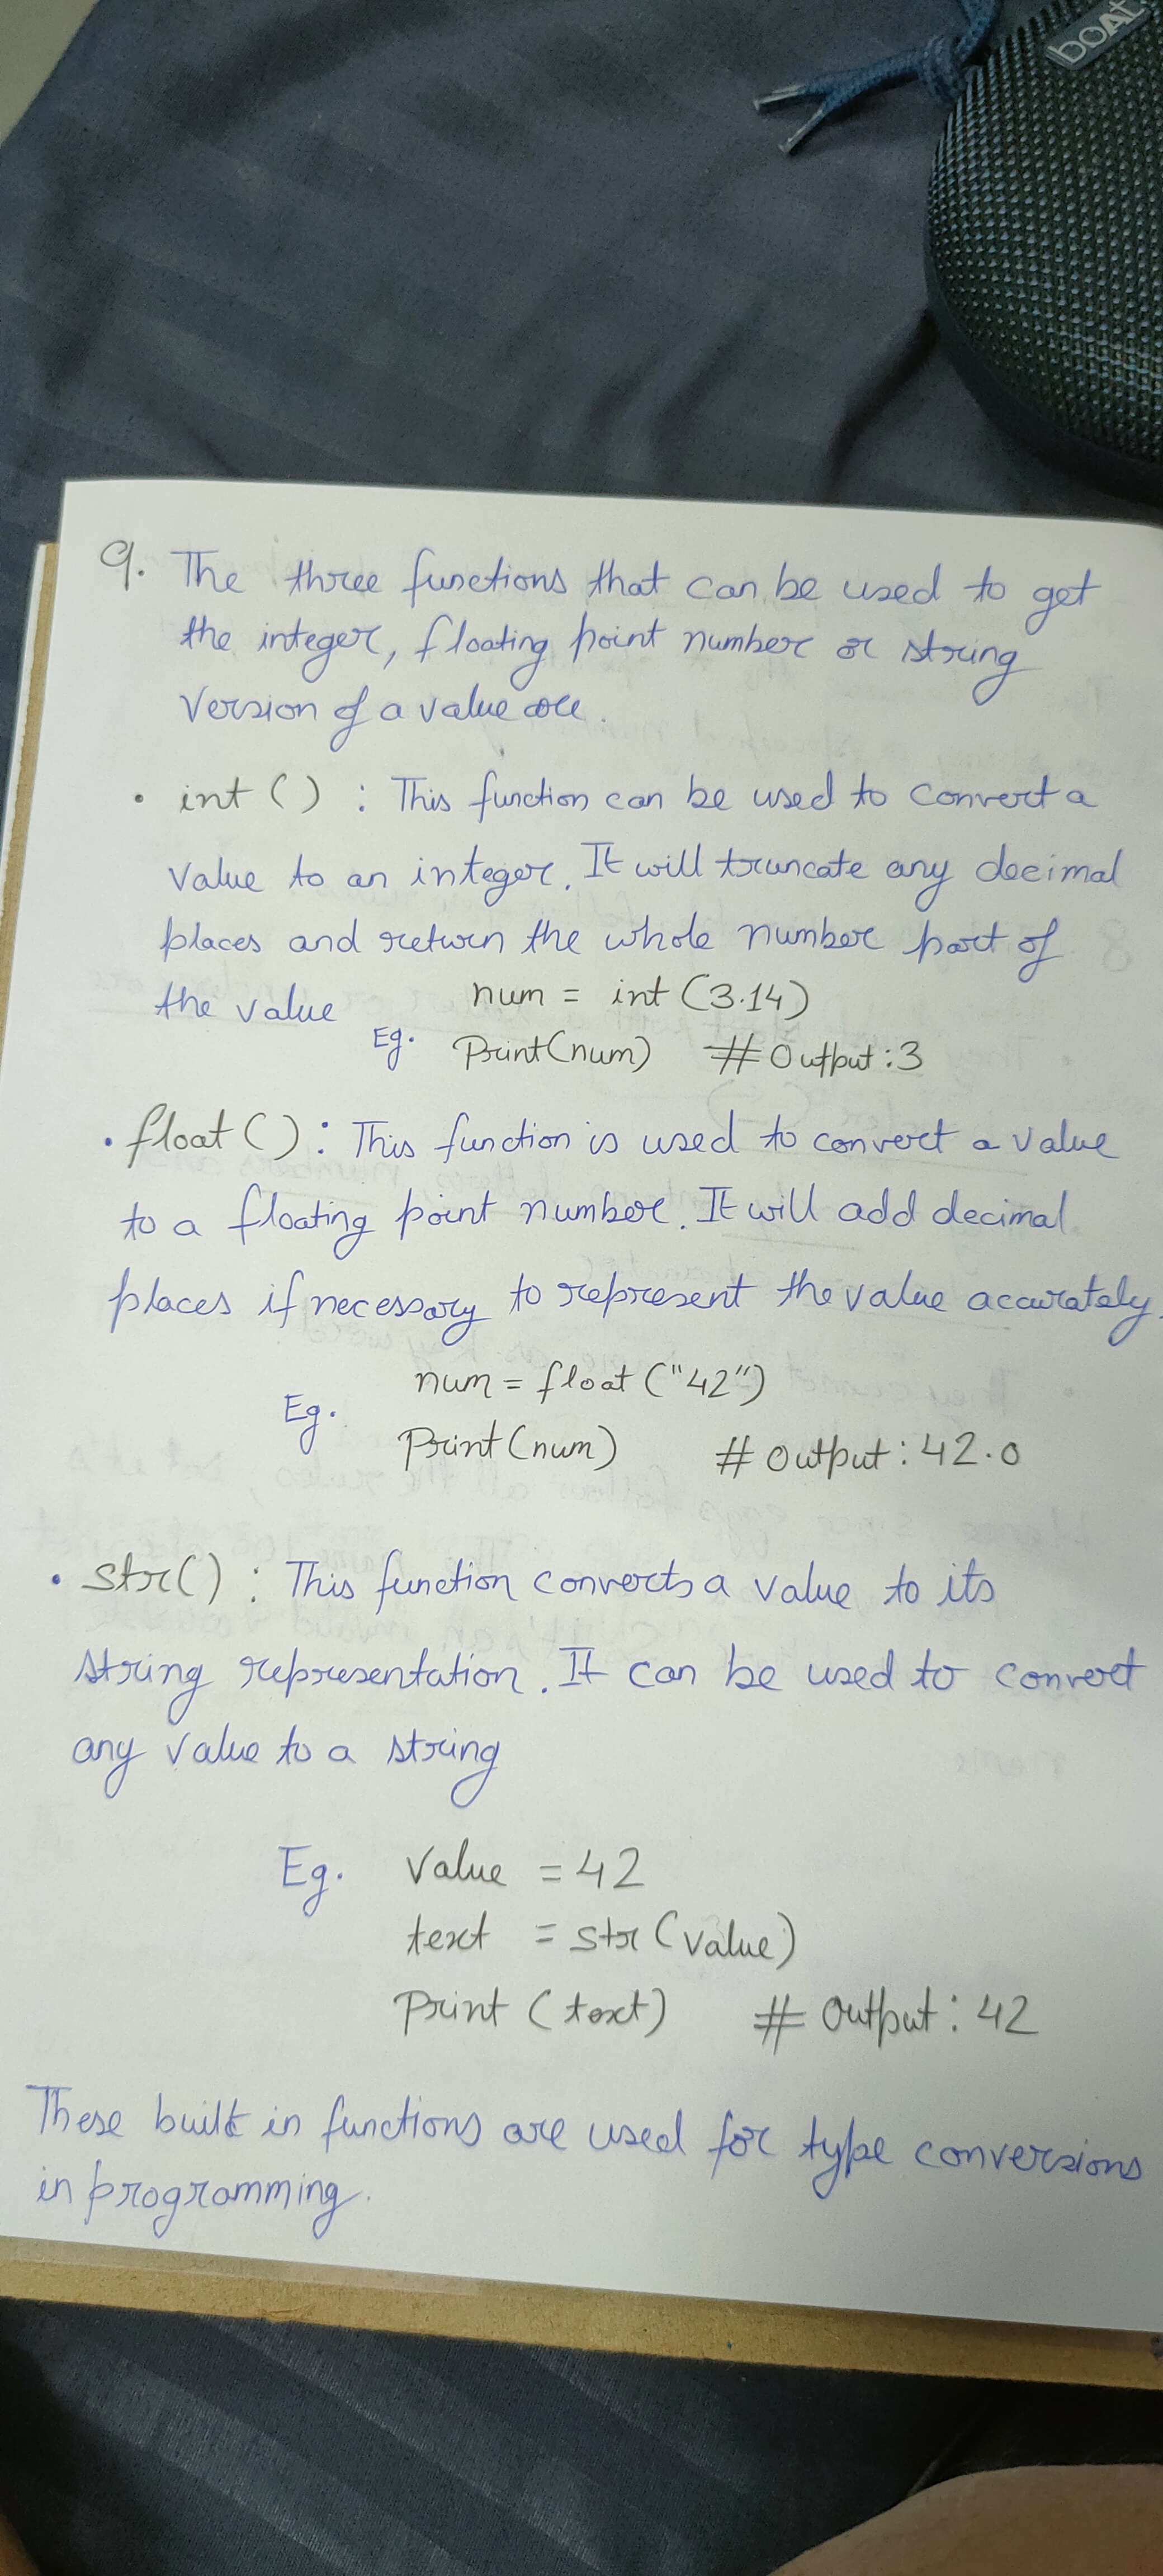 boAt
9. The three functions that can be used to get
the integer, floating point number or string
Version of a value are.
• int () : This function can be used to convert a
value to an integer. It will truncate any decimal
places and return the whole number part of
the value
num = int (3.14)
Eg. Print(num) # Output : 3
• float () : This function is used to convert a value
to a floating point number. It will add decimal
places if necessary to represent the value accurately.
num = float ("42")
Eg. Print (num) # Output : 42.0
• str() : This function converts a value to its
string representation. It can be used to convert
any value to a string
Eg. Value = 42
text = str (value)
Print (text) # Output : 42
These built in functions are used for type conversions
in programming.